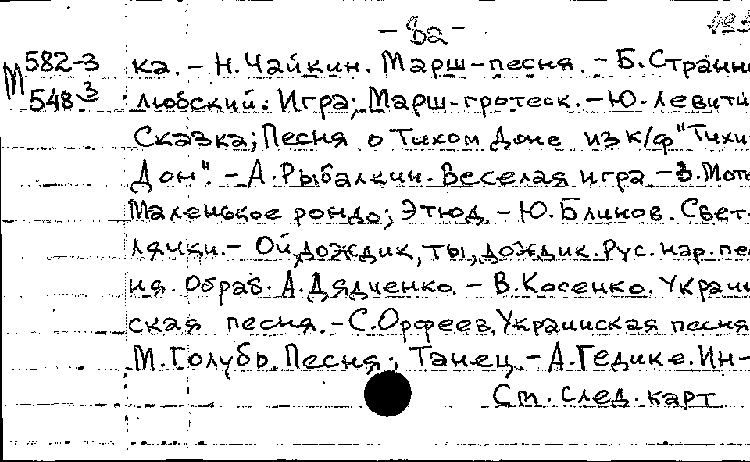 -8а-
М 582-3 ка. – Н. Чайкин. Марш-песня. – Б. Странно
548-3 любский. Игра; Марш-гротеск. – Ю. Левити
Сказка; Песня о Тихом Доне из к/ф "Тихи
Дон". – А. Рыбалкин. Веселая игра – З. Мото
Маленькое рондо; Этюд – Ю. Блинов. Свет-
лячки. – Ой, дождик, ты, дождик. Рус. нар. пе
ня. Обраб. А. Дядченко. – В. Косенко. Украин
ская песня. – С. Орфеев. Украинская песня
М. Голубь. Песня; Танец – А. Гедике. Ин-
См. след. карт